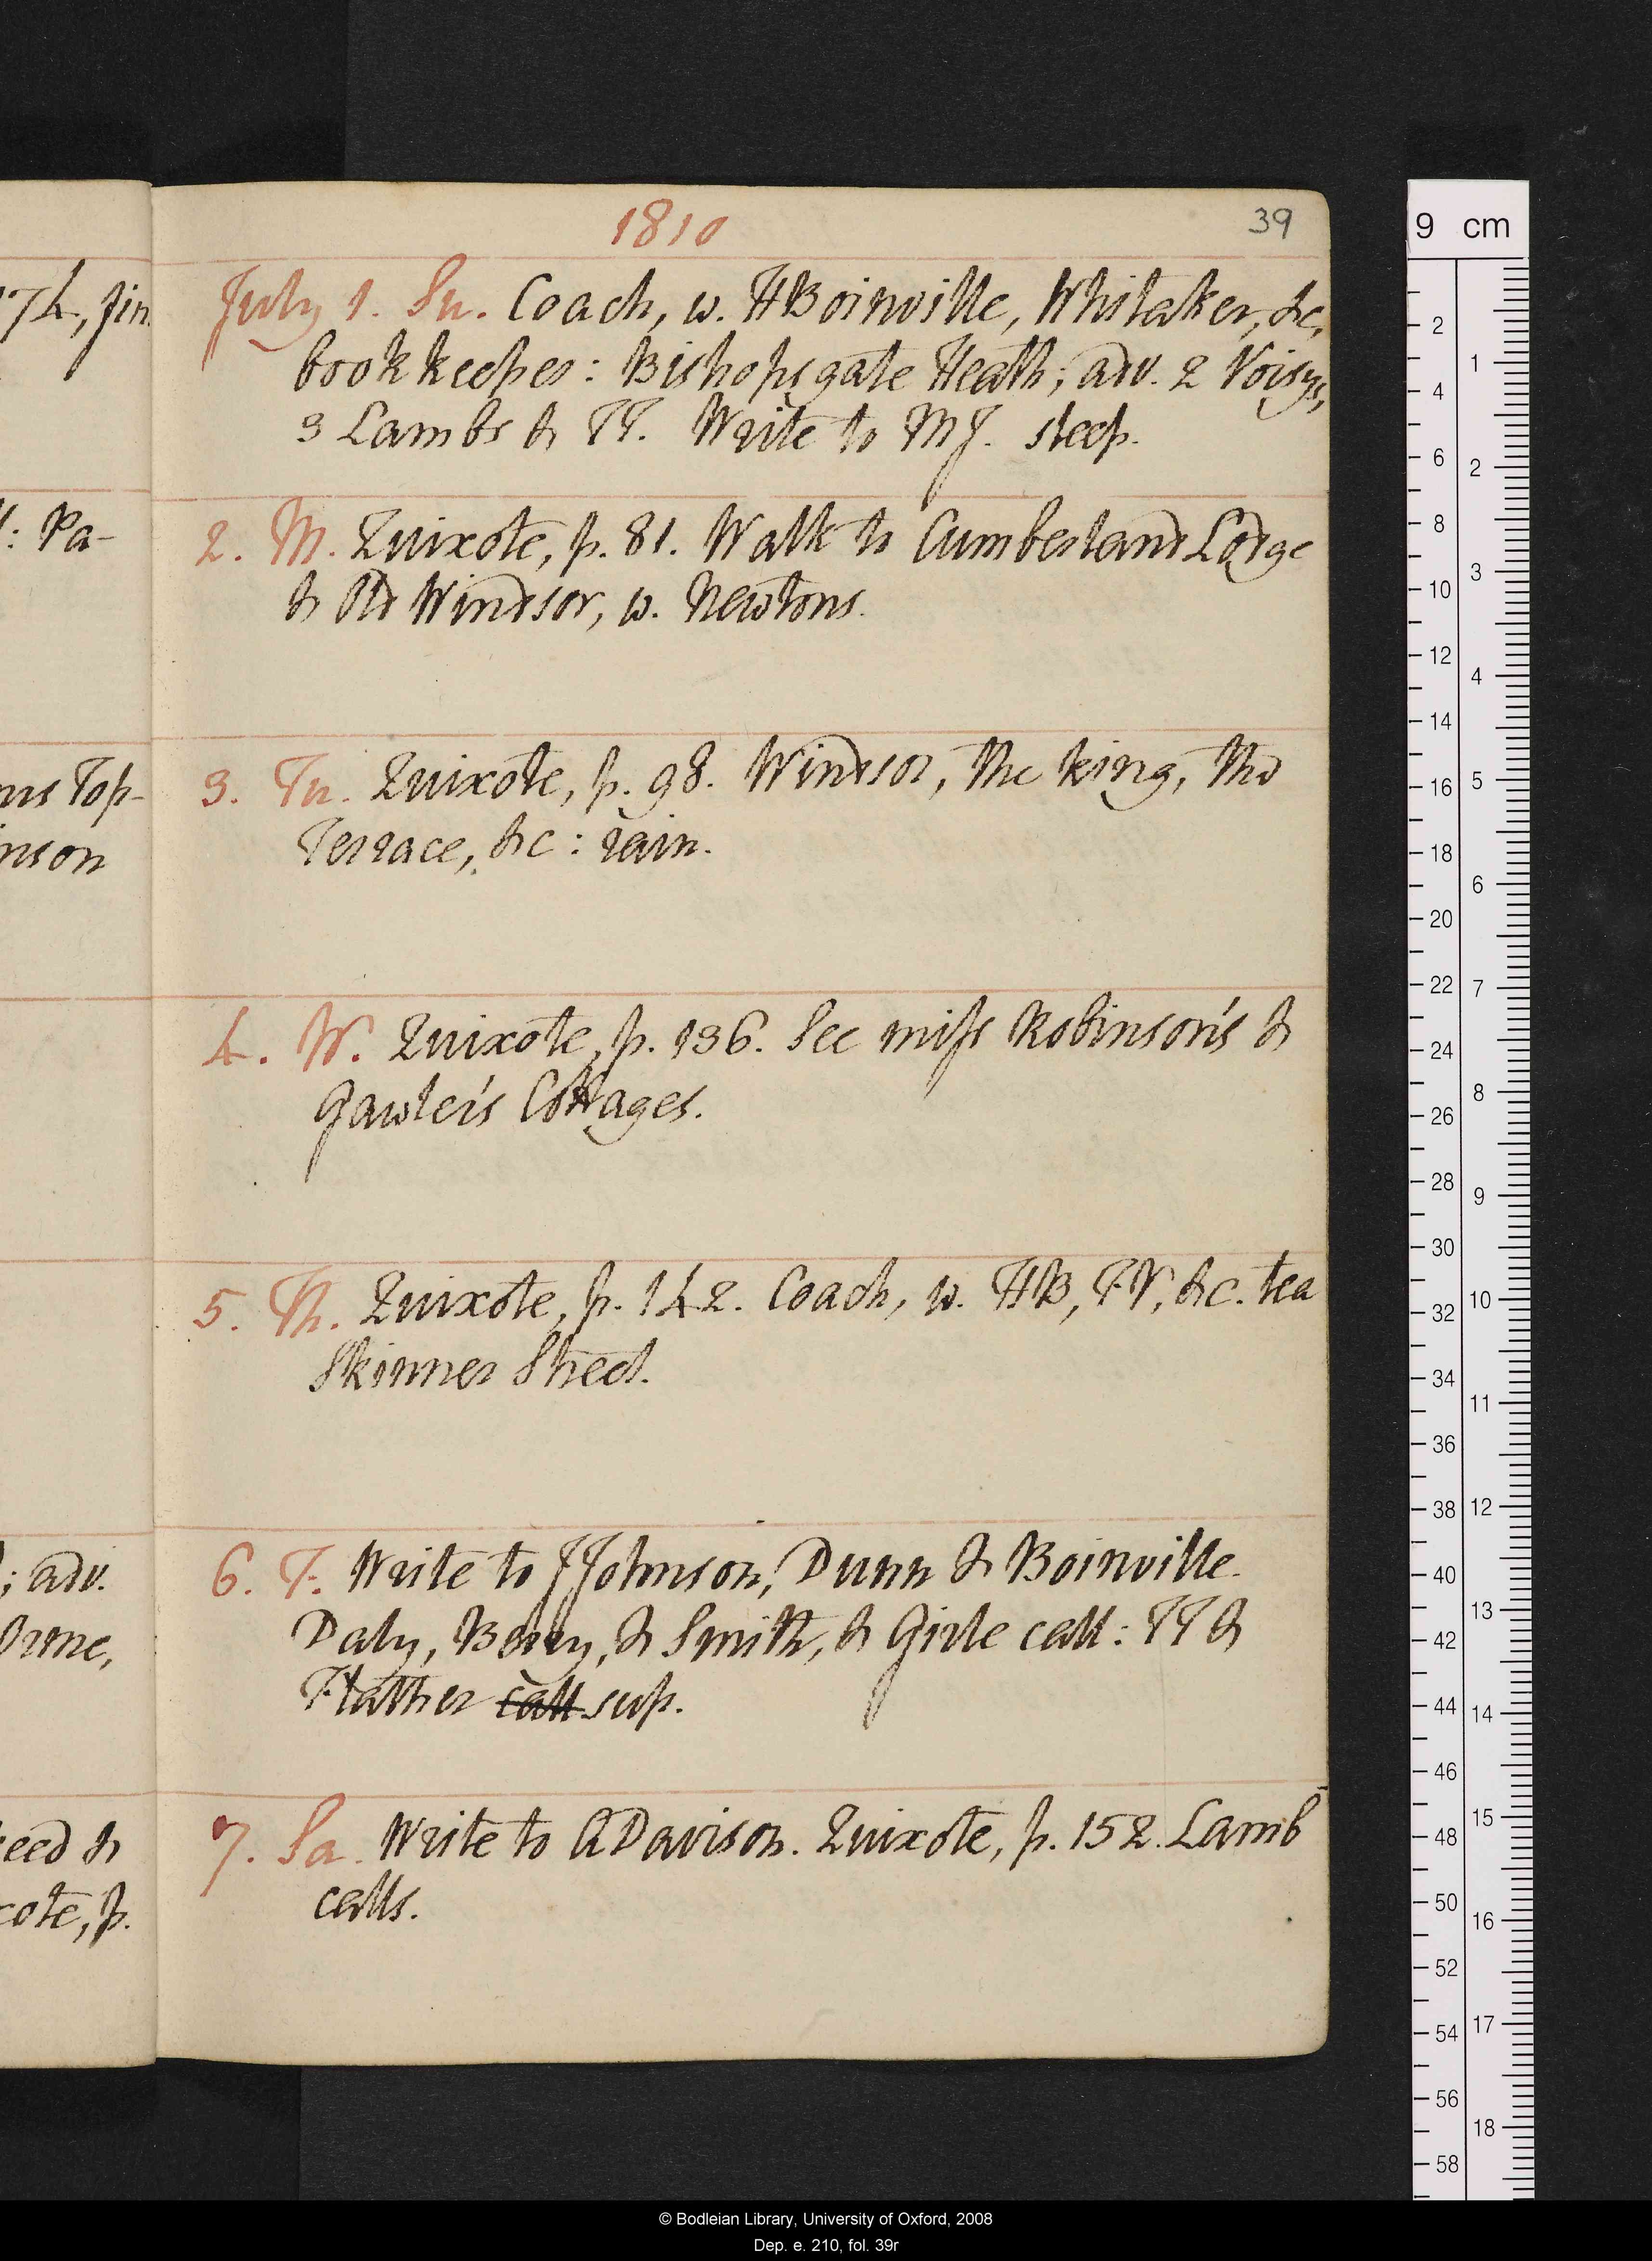 1810
39
July 1. Su. Coach, w. HBoinville, Whitaker, &c,
book keeper: Bishopsgate Heath; adv. 2 Voisys,
3 Lambs & TT. Write to MJ. sleep.
2. M. Quixote, p. 81. Walk to Cumberland Lodge
& Old Windsor, w. Newtons.
3. Tu. Quixote, p. 98. Windsor, the king, the
Terrace, &c: rain.
4. W. Quixote, p. 136. See miss Robinson's &
Gawler's Cottages.
5. Th. Quixote, p. 142. Coach, w. HB, FV, &c. tea
Skinner Street.
6. F. Write to JJohnson, Dunn & Boinville.
Daly, Berry, & Smith, & Girle call: TT &
Flather call sup.
7. Sa. Write to ADavison. Quixote, p. 152. Lamb
calls.
74, fin.
: Pa-
Top-
nson
; adv.
Orme,
eed &
xote, p.
9 cm
2
4
6
8
10
12
14
16
18
20
22
24
26
28
30
32
34
36
38
40
42
44
46
48
50
52
54
56
58
1
2
3
4
5
6
7
8
9
10
11
12
13
14
15
16
17
18
© Bodleian Library, University of Oxford, 2008
Dep. e. 210, fol. 39r